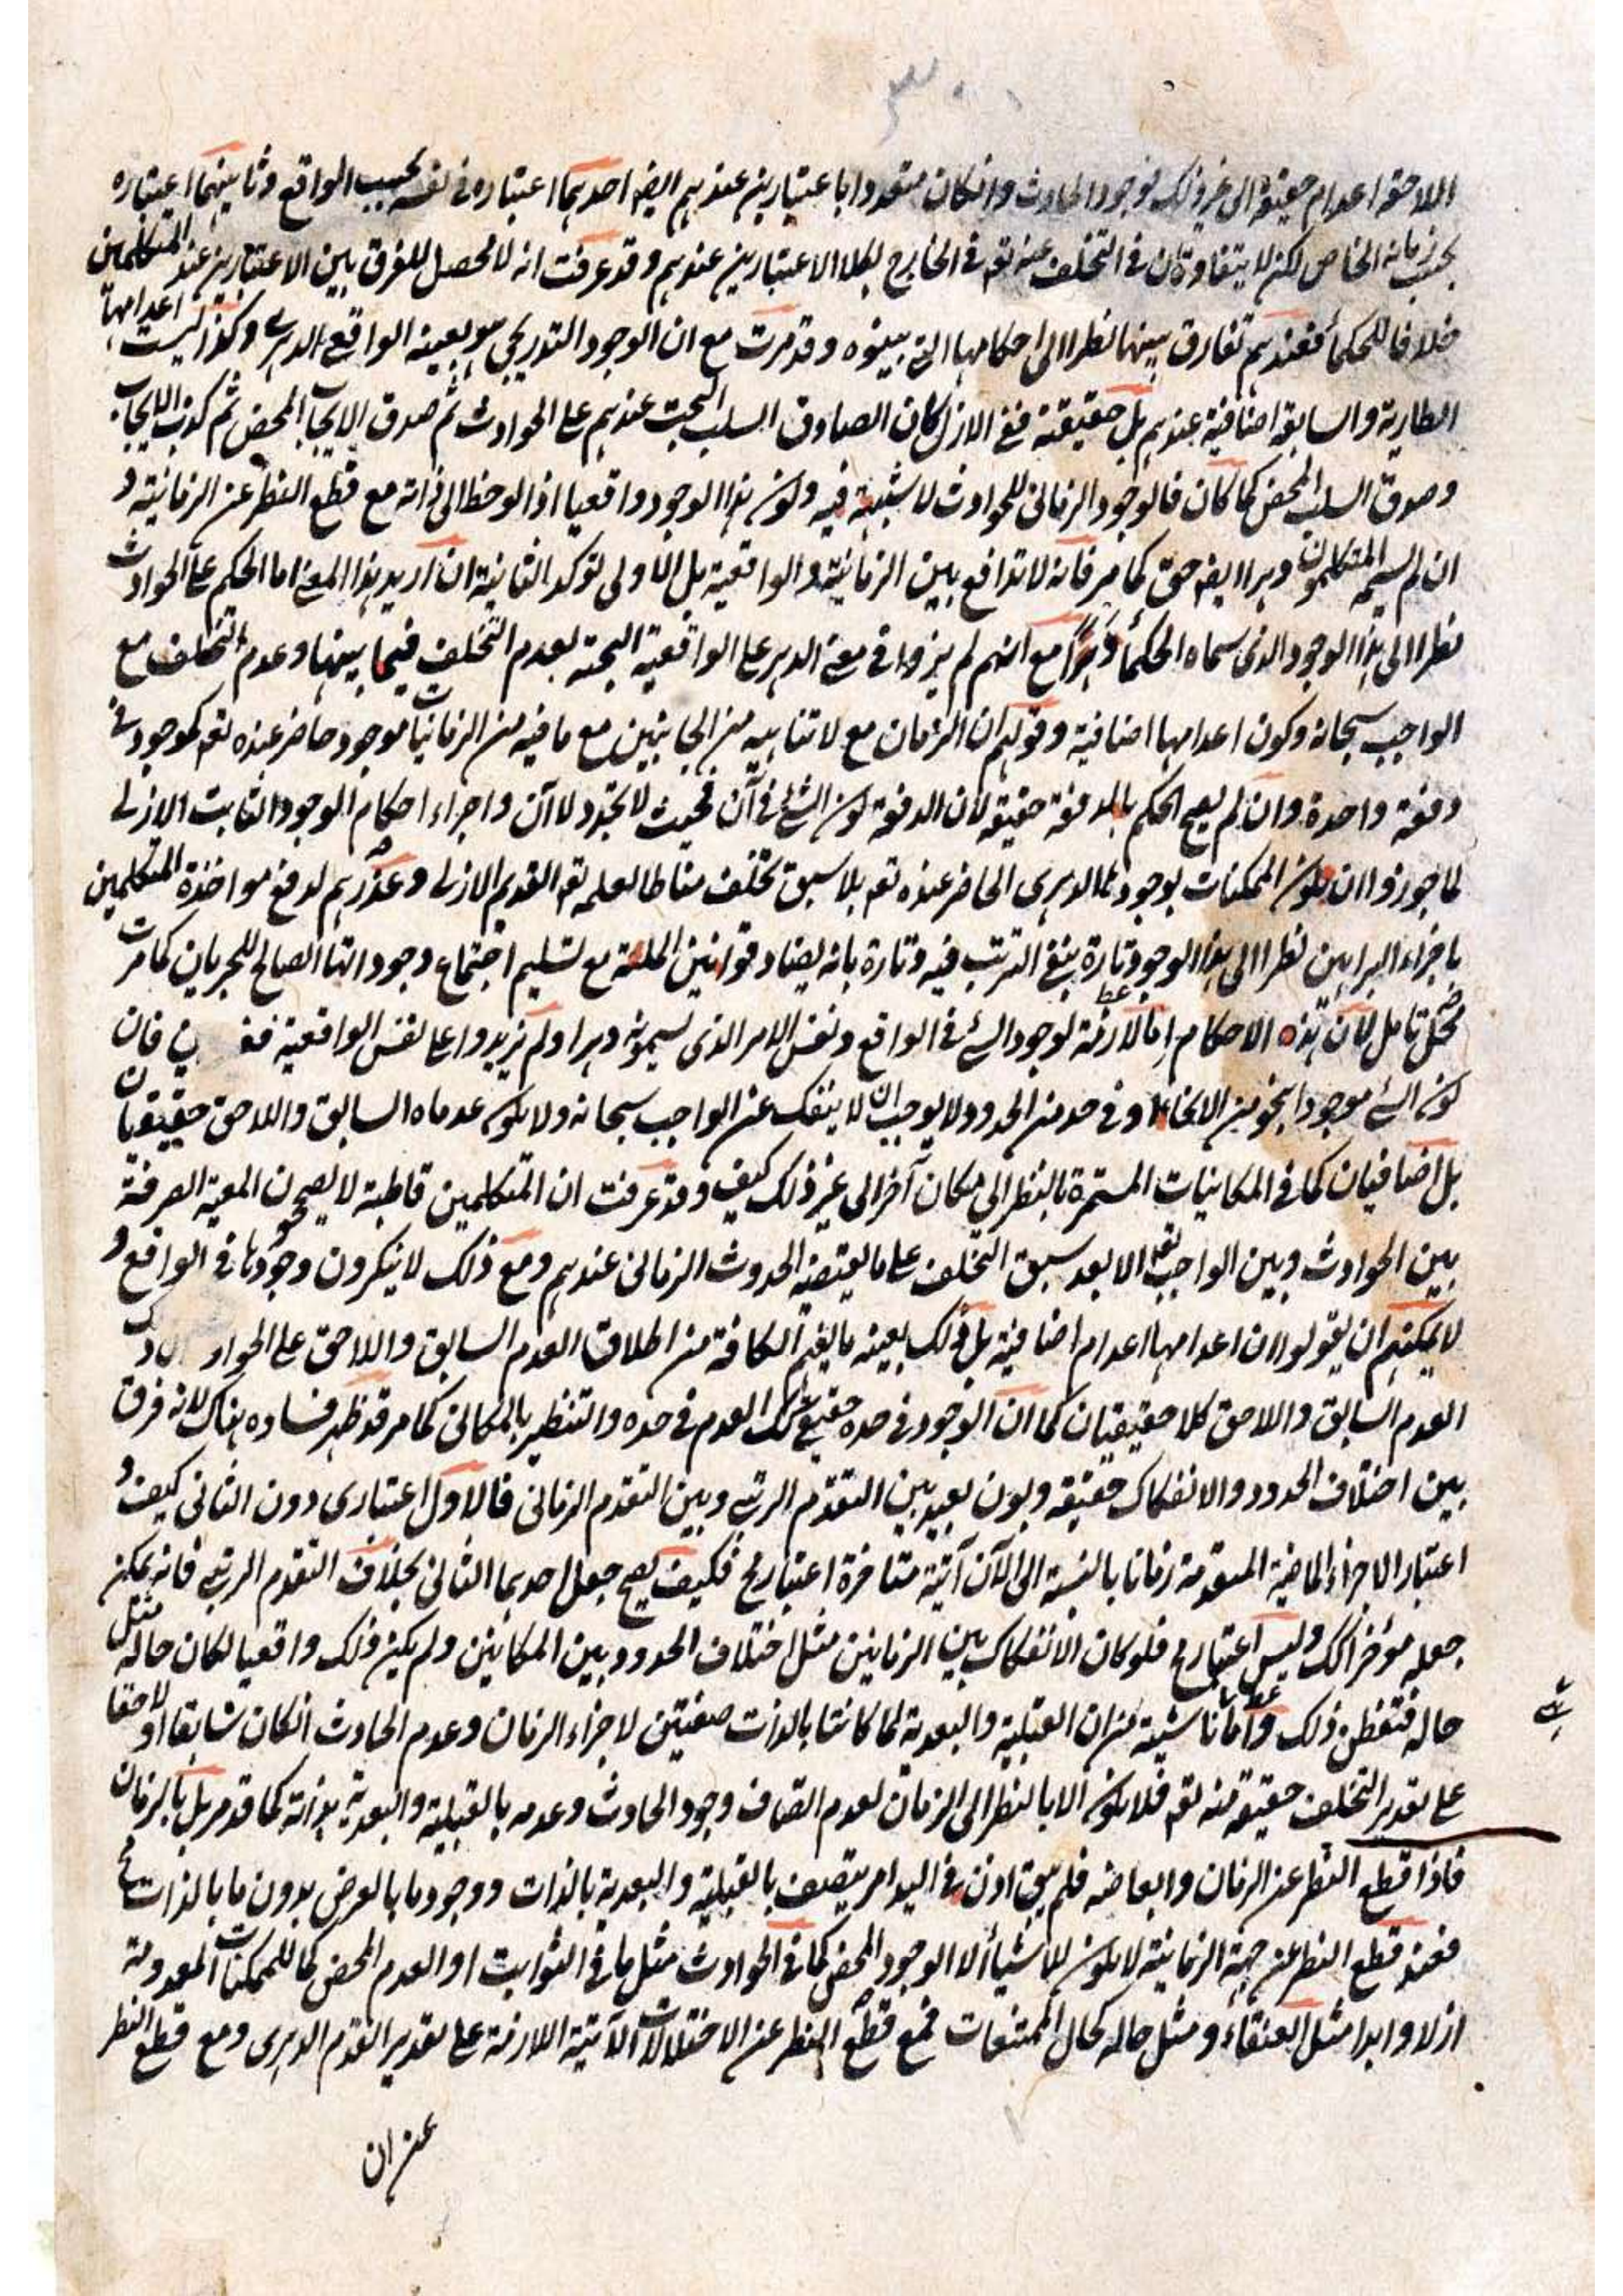 ٣٠٠
اللاحقة اعدام حقيقة الى غير ذلك فوجود الحادث وانكان متعددا باعتبارين عندهم ايضا احدهما اعتباره في نفسه بحسب الواقع وثانيهما اعتباره
بحسب زمانه الخاص لكن لا يتفاوتان في التخلف عنه تعم في الخارج بكلا الاعتبارين عندهم وقد عرفت انه لا محصل للفرق بين الاعتبارين عند المتكلمين
خلافا للحكماء فعندهم تفارق بينهما نظرا الى احكامها التي بينوه وقد مرت مع ان الوجود التدريجي هو بعينه الواقعي الدهري وكذا ليست اعدامها
الطارية والسابقة اضافية عندهم بل حقيقته ففي الازل كان الصادق السلب البحت عندهم على الحوادث ثم صدق الايجاب المحض ثم كذب الايجاب
وصدق السلب المحض كما كان فالوجود الزماني للحوادث لا شبهة فيه وكون هذا الوجود واقعيا اذا لوحظ الى ذاته مع قطع النظر عن الزمانية و
ان لم يسمه المتكلمون دهرا ايضا حق كما مر فانه لا تدافع بين الزمانية والواقعية بل الاولى تؤكد الثانية ان اريد هذا المعنى اما الحكم على الحوادث
نظرا الى هذا الوجود الذي سماه الحكماء دهرا مع انهم لم يزدوا في معنى الدهر على الواقعية البحتة بعدم التخلف فيما بينها وعدم التخلف مع
الواجب سبحانه وكون اعدامها اضافية وقولهم ان الزمان مع لا تناهيه من الجانبين مع ما فيه من الزمانيات موجود حاضر عنده تعم كموجود في
دفعة واحدة وان لم يصح الحكم بالدفعة حقيقة لان الدفعة كون الشئ في آن فحيث لا تجدد لا آن واجراء احكام الوجود الثابت الازلي
لما جوزوا ان يكون الممكنات بوجودها الدهري الحاضر عنده تعم بلا سبق تخلف مناطا لعلمه تعم القديم الازلي وعذرهم لدفع مواخذة المتكلمين
باجراء البراهين نظرا الى هذا الوجود تارة بنفي الترتب فيه وتارة بانه يضاد قوانين الملة مع تسليم اجتماع وجوداتها الصالح للجريان كما مرت
محل تامل لان هذه الاحكام اما لازمة لوجود الشئ في الواقع ونفس الامر الذي يسمونه دهرا ولم يزيدوا على نفس الواقعية فان
كون الشئ موجودا بنحو من الانحاء وفي حد من الحدود لا يوجب ان لا ينفك عن الواجب سبحانه ولا يكون عدماه السابق واللاحق حقيقيان
بل اضافيان كما في المكانيات المستمرة بالنظر الى مكان آخر الى غير ذلك كيف وقد عرفت ان المتكلمين قاطبة لا يصححون المعية الصرفة
بين الحوادث وبين الواجب تعم الا بعد سبق التخلف على ما يقتضيه الحدوث الزماني عندهم ومع ذلك لا ينكرون وجودها في الواقع و
لا يمكنهم ان يقولوا ان اعدامها اعدام اضافية بل ذلك بعينه ما يفهم الكافة من اطلاق العدم السابق واللاحق على
العدم السابق واللاحق كلا حقيقيان كما ان الوجود في حده حقيقي كذلك العدم في حده والتنظير بالمكاني كما مر قد ظهر فساده هناك لانه فرق
بين اختلاف الحدود والانفكاك حقيقة وبون بعيد بين التقدم الرتبي وبين التقدم الزماني فالاول اعتباري دون الثاني كيف و
اعتبار الاجزاء الماضية المتقدمة زمانا بالنسبة الى الآن آتية متاخرة اعتبار مح فكيف يصح جعل احدهما الثاني بخلاف التقدم الرتبي فانه يمكن
جعله مؤخرا لك وليس اعتبار مح فلو كان الانفكاك بين الزمانين مثل اختلاف الحدود بين المكانين ولم يكن ذلك واقعيا لكان حاله مثل
حاله فتفطن ذلك واما ناشية من ان القبلية والبعدية لما كانتا بالذات صفتين لاجزاء الزمان وعدم الحادث انكان سابقا او لاحقا
على تقدير التخلف حقيقة منه تعم فلا يكون الا بالنظر الى الزمان لعدم اتصاف وجود الحادث وعدمه بالقبلية والبعدية بذاته كما قد مر بل بالزمان
فاذا قطع النظر عن الزمان وابعاضه فلم يبق اذن في البدا مر يتصف بالقبلية والبعدية بالذات ووجود ما بالعرض بدون ما بالذات مح
فعند قطع النظر عن جهة الزمانية لا يكون للاشياء الا الوجود المحض كما في الحوادث مثل ما في الثوابت او العدم المحض كما للممكنات المعدومة
ازلا وابدا مثل العنقاء ومثل حاله كحال الممتنعات فمع قطع النظر عن الاختلالات الآتية اللازمة على تقدير التقدم الدهري ومع قطع النظر
عن ان